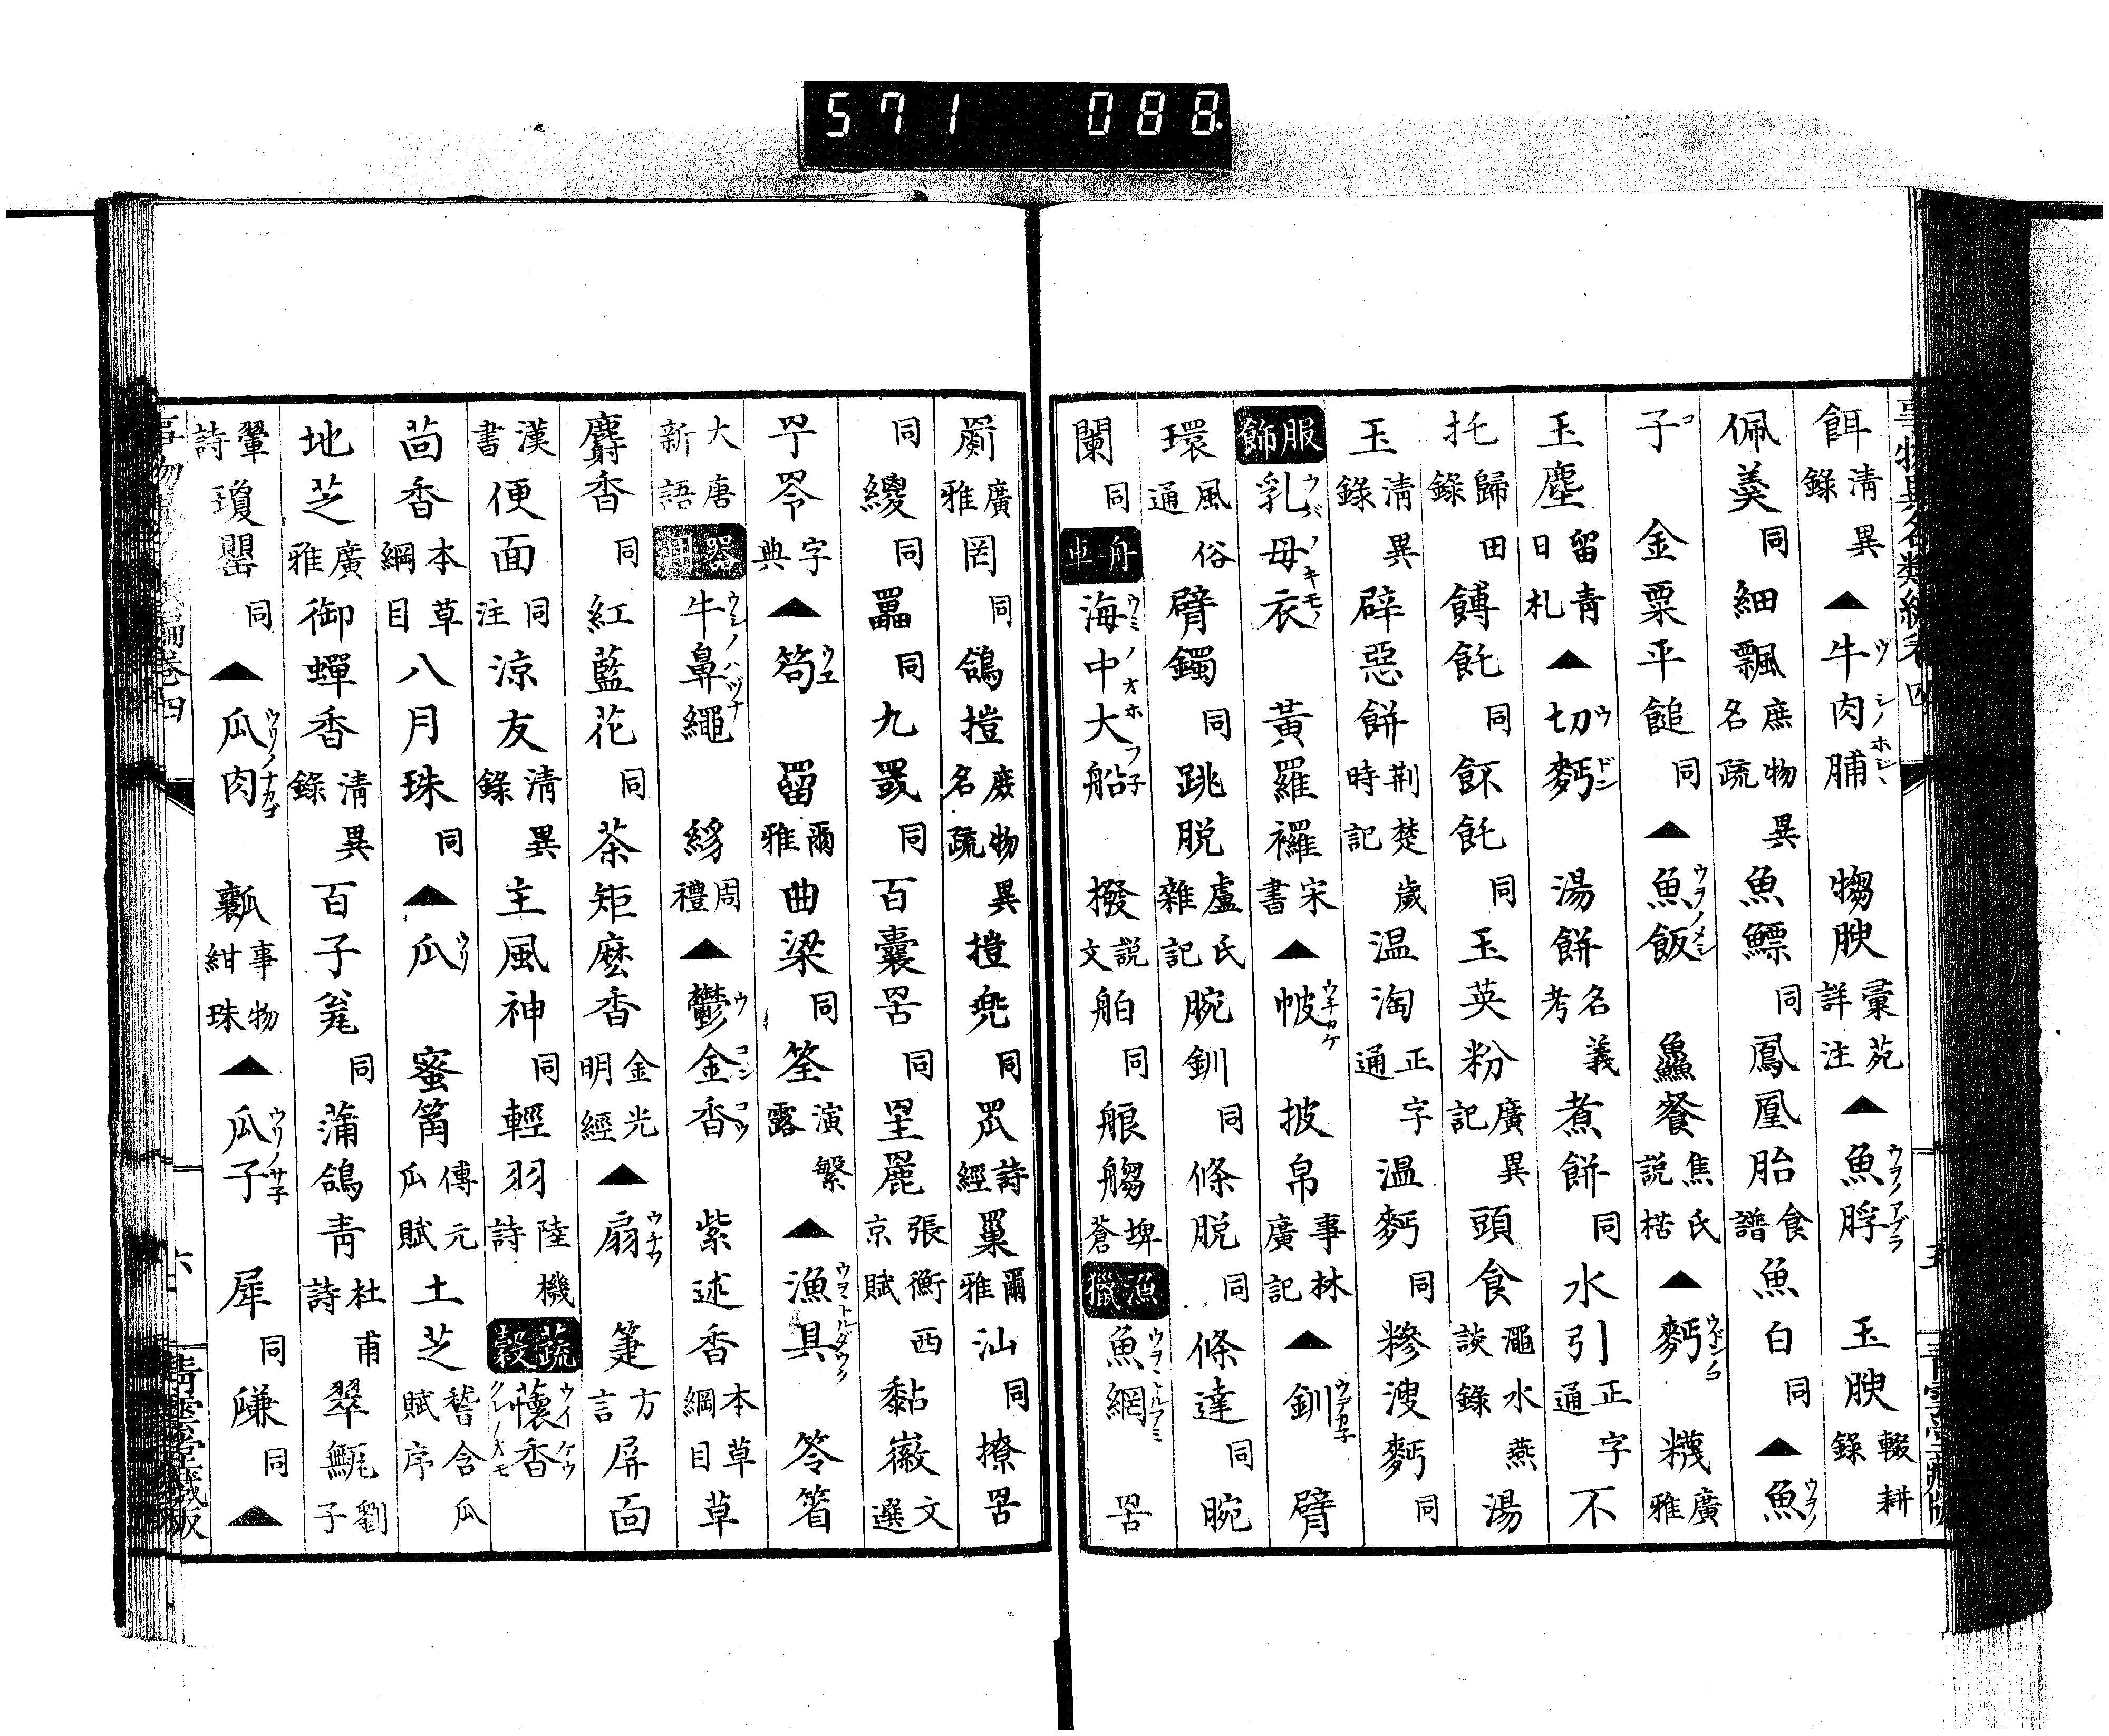 571 088
餌清異錄▲牛肉脯ウシノホシヽ 犓腴彙苑詳注▲魚脬ウヲノアブラ 玉腴輟耕錄
佩羹同細飄庶物異名疏魚鰾同鳳凰胎食譜魚白同▲魚ウヲノ
子コ 金粟平䭔同▲魚飯ウヲノメシ 鱻餐焦氏說楛▲麪ウドンノコ 糢廣雅
玉塵留青日札▲切麪ウドン 湯餅名義考煮餅同水引正字通不
托歸田錄餺飥同䬩飥同玉英粉廣異記頭食澠水燕談錄湯
玉清異錄辟惡餅荆楚歲時記温淘正字通温麪同糝溲麪同
服飾 乳母衣ウバノキモノ 黃羅襬宋書▲帔ウチカケ 披帛事林廣記▲釧ウデカ子 臂
環風俗通臂鐲同跳脱盧氏雜記腕釧同條脱同條達同腕
闌同 舟車 海中大船ウミノオホフ子 撥說文舶同艆䑳埤蒼 漁獵 魚網ウヲトルアミ 罟
罽廣雅罔同鴿𢰸庶物異名疏𢰸兠同罛詩經罺爾雅汕同撩罟
同緵同罍同九罭同百囊罟同罜麗張衡西京賦黏徽文選
罕笭字典▲笱ウエ 罶爾雅曲梁同筌演繁露▲漁具ウヲトルダウグ 笭箵
大唐新語 器用 牛鼻繩ウシノハヅナ 絼周禮▲鬱金香ウコンコウ 紫述香本草綱目草
麝香同紅藍花同茶矩麽香金光明經▲扇ウチワ 箑方言屏面
漢書便面同注涼友清異錄主風神同輕羽陸機詩 蔬穀 蘹香ウイケウ クレノオモ
茴香本草綱目八月珠同▲瓜ウリ 蜜筩傳元瓜賦土芝嵇含瓜賦序
地芝廣雅御蟬香清異錄百子甕同蒲鴿青杜甫詩翠䰄劉子
翬詩瓊罌同▲瓜肉ウリノナカゴ 瓤事物紺珠▲瓜子ウリノサ子 犀同𤬓同▲
事物異名類編卷四 五 青雲堂藏版
事物 編卷四 六 青雲堂藏版